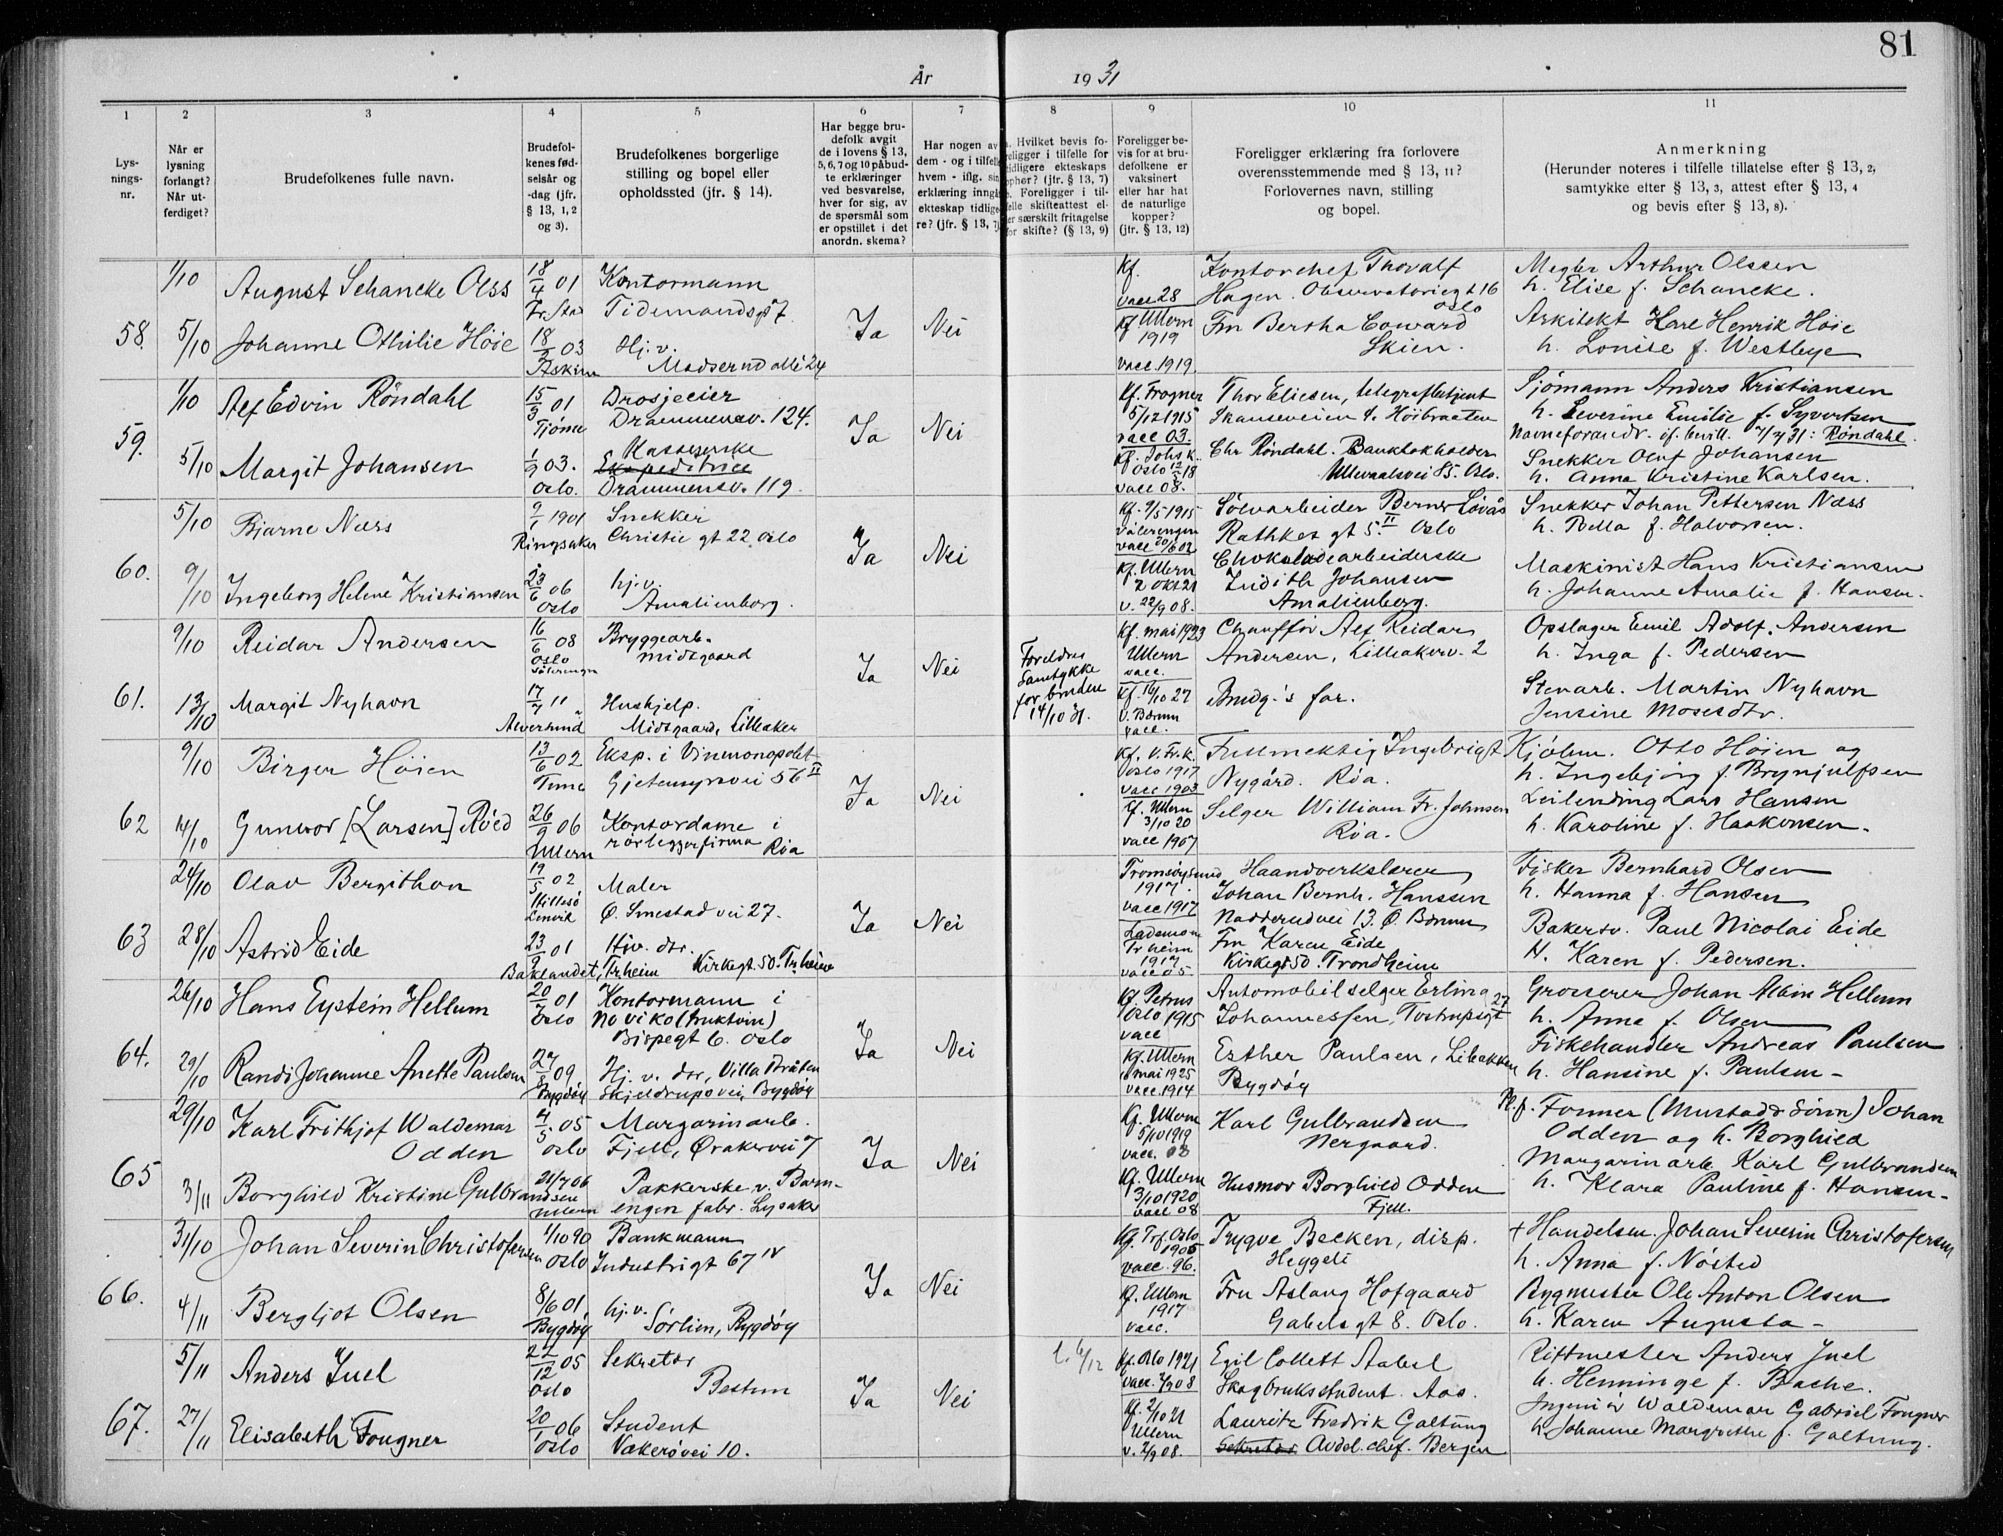 81
År 1931
1
2
3
4
5
6
7
8
9
10
11
Lys-
nings-
nr.
Når er
lysning
forlangt?
Når ut-
ferdiget?
Brudefolkenes fulle navn.
Brudefol-
kenes fød-
selsår og
-dag (jfr.
§ 13, 1, 2
og 3).
Brudefolkenes borgerlige
stilling og bopel eller
opholdssted (jfr. § 14).
Har begge bru-
defolk avgit
de i lovens § 13,
5, 6, 7 og 10 påbud-
te erklæringer
ved besvarelse,
hver for sig, av
de spørsmål som
er opstillet i det
anordn. skema?
Har nogen av
dem - og i tilfelle
hvem - iflg. sin
erklæring inngå
ekteskap tidlige-
re? (jfr. § 13, 7)
Hvilket bevis fo-
religger i tilfelle for
tidligere ekteskaps
ophør? (jfr. § 13, 7)
Foreligger i til-
felle skifteattest el-
er særskilt fritagelse
for skifte? (§ 13, 9)
Foreligger be-
vis for at bru-
defolkene er
vaksinert
eller har hat
de naturlige
kopper?
(jfr. § 13, 12)
Foreligger erklæring fra forlovere
overensstemmende med § 13, 11?
Forlovernes navn, stilling
og bopel.
Anmerkning
(Herunder noteres i tilfelle tillatelse efter § 13, 2,
samtykke efter § 13, 3, attest efter § 13, 4
og bevis efter § 13, 8).
58.
1/10
August Schancke Olss
18/4 01
Fr.stad
Kontormann
Tidemandsgt 7
Ja
Nei
Kf.
vacc 28
Kontorchef Thoralf
Hagen. Observatoriegt 16
Oslo
Megler Arthur Olssen
h. Elise f. Schancke.
5/10
Johanne Othilie Høie
18/2 03
Askim
Hj. v.
Madserud allé 24
Kf Ullern
1919
vacc 1919
Fru Bertha Coward
Skien.
Arkitekt Karl Henrik Høie
h. Louise f. Westbye
59.
1/10
Alf Edvin Røndahl
15/3 01
Tjøme
Drosjeeier
Drammensv. 124.
Ja
Nei
Kf. Frogner
5/12 1915
vacc 03.
Thor Eliesen, telegrafbetjent
Skanseveien 4. Høibraaten
Sjømann Anders Kristiansen
h. Severine Emilie f. Syvertsen
Navneforandr. if. bevill. 7/7 31: Røndahl.
5/10
Margit Johansen
1/9 03.
Oslo.
Kassererske
Ekspeditrice
Drammensv. 119.
Kf. Johs k.
Oslo 12/5 18
vacc 08.
Chr Røndahl. Banklokholder
Ullevaalsvei 85. Oslo.
Snekker Oluf Johansen
h. Anna Kristine Karlsen.
60.
5/10
Bjarne Næss
9/1 1901
Ringsaker
Snekker
Christie gt 22 Oslo
Ja
Nei
Kf. 9/5 1915
Vålerengen
vacc 20/6 02
Sølvarbeider Berner Løvås
Rathkes gt 5. II Oslo
Snekker Johan Pettersen Næss
h. Bella f. Halvorsen.
9/10
Ingeborg Helene Kristiansen
23/6 06
Oslo
hj. v.
Amalienborg.
Kf. Ullern
2 okt 21
v. 22/9 08.
Chokoladearbeiderske
Judith Johansen
Amalienberg.
Maskinist Hans Kristiansen
h. Johanne Amalie f. Hansen.
61.
9/10
Reidar Andersen
16/6 08
Oslo
Vålerengen
Bryggearb.
Midtgaard
Ja
Nei
Foreldres
Samtykke
for bruden
14/10 31.
Kf. mai 1923
Ullern
vacc.
Chauffør Alf Reidar
Andersen, Lilleakerv. 2
Opslager Emil Adolf Andersen
h. Inga f. Pedersen
13/10
Margit Nyhavn
17/7 11
Alversund
Hushjelp.
Midtgaard, Lilleaker
Kf. 16/10 27
V. Bærum
vacc.
Brudg.'s far.
Stenarb. Martin Nyhavn
Jensine Mosesdtr.
62
9/10
Birger Høien
13/6 02
Tune
Eksp. i Vinmonopolet
Gjetemyrsvei 56 II
Ja
Nei
Kf. V. Fr. k.
Oslo 1917
vacc 1903
Fullmektig Ingebrigt
Nygård. Røa.
Kjøbm. Otto Høien og
h. Ingebjørg f. Brynjulfsen
14/10
Gunvor [Larsen] Røed
26/9 06
Ullern
Kontordame i
rørleggerfirma Røa
Kf. Ullern
3/10 20
vacc 1907
Selger William Fr. Johnsen
Røa.
Leilending Lars Hansen
h. Karoline f. Haakonsen.
63
24/10
Olav Bergithon
19/5 02
Hillesø
Lenvik
Maler
Ø. Smestad vei 27.
Ja
Nei
Tromsøysund
1917.
vacc 1917
Haandverkslærer
Johan Bernh. Hanssen
Nadderudvei 13. Ø. Bærum
Fisker Bernhard Olsen
h. Hanna f. Hansen
28/10
Astrid Eide
23/9 01
Baklandet, Tr.heim
Hjv. dtr.
Kirkegt. 50. Tr.heim
Lademoen
Tr heim
1917
vacc 05.
Fru Karen Eide
Kirkegt 50. Trondheim
Bakersv. Paul Nicolai Eide
H. Karen f. Pedersen.
64.
26/10
Hans Eystein Hellum
20/7 01
Oslo
Kontormann i
Noviko (fruktvin)
Bispegt 6. Oslo
Ja
Nei
Kf. Petrus
Oslo 1915
vacc
Automobilselger Erling
Johannessen, Tostrupsgt 27
Grosserer Johan Albin Hellum
h. Anna f. Olsen
29/10
Randi Johanne Anette Paulsen
27/8 09
Bygdøy
Hj. v. dtr, Villa Bråten
Skjeldrupsvei, Bygdøy
Kf. Ullern
mai 1925
vacc 1914
Esther Paulsen, Libakken
Bygdøy
Fiskehandler Andreas Paulsen
h. Hansine f. Paulsen -
65
29/10
Karl Frithjof Waldemar
Odden
4/5 05
Oslo
Margarinarb.
Fjell, Ørakervei 7
Ja
Nei
Kf. Ullern
5/10 1919
vacc. 08
Karl Gulbrandsen
Nergaard.
Pl. f. Former (Mustad & Sønn) Johan
Odden og h. Borghild
3/11
Borghild Kristine Gulbrandsen
21/7 06
Ullern
Pakkerske v. Barm-
engen fabr. Lysaker
Kf. Ullern
3/10 1920
vacc 08
Husmor Borghild Odden
Fjell.
Margarinarb. Karl Gulbrandsen
h. Klara Pauline f. Hansen -
66.
31/10
Johan Severin Christofersen
1/10 90
Oslo
Bankmann
Industrigt 67 IV
Ja
Nei
Kf. Trf. Oslo
1905
vacc. 96.
Trygve Becken, disp.
Heggeli
+ Handelsm. Johan Severin Christofersen
h. Anna f. Nøsted
4/11
Bergljot Olsen
8/6 01
Bygdøy
hj. v.
Sørlien, Bygdøy
Kf. Ullern
1917
vacc.
Fru Aslaug Hofgaard
Gabels gt 8. Oslo.
Bygmester Ole Anton Olsen
h. Karen Augusta -
67.
5/11
Anders Juel
22/12 05
Oslo
Sekretær
Bestum
Ja
Nei
l. 6/12
Kf. Oslo 1921
vacc. 7/9 08
Egil Collett Aabel
Skogbruksstudent. Aas.
Rittmester Anders Juel
h. Henninge f. Bache.
27/11
Elisabeth Fougner
20/1 06
Oslo
Student
Vækerøvei 10.
Kf. 2/10 21
Ullern
v. 7/9 08.
Lauritz Fredrik Galtung
Sekretær Avdel. chef. Bergen
Ingeniør Waldemar Gabriel Fougner
h. Johanne Margrethe f. Galtung.